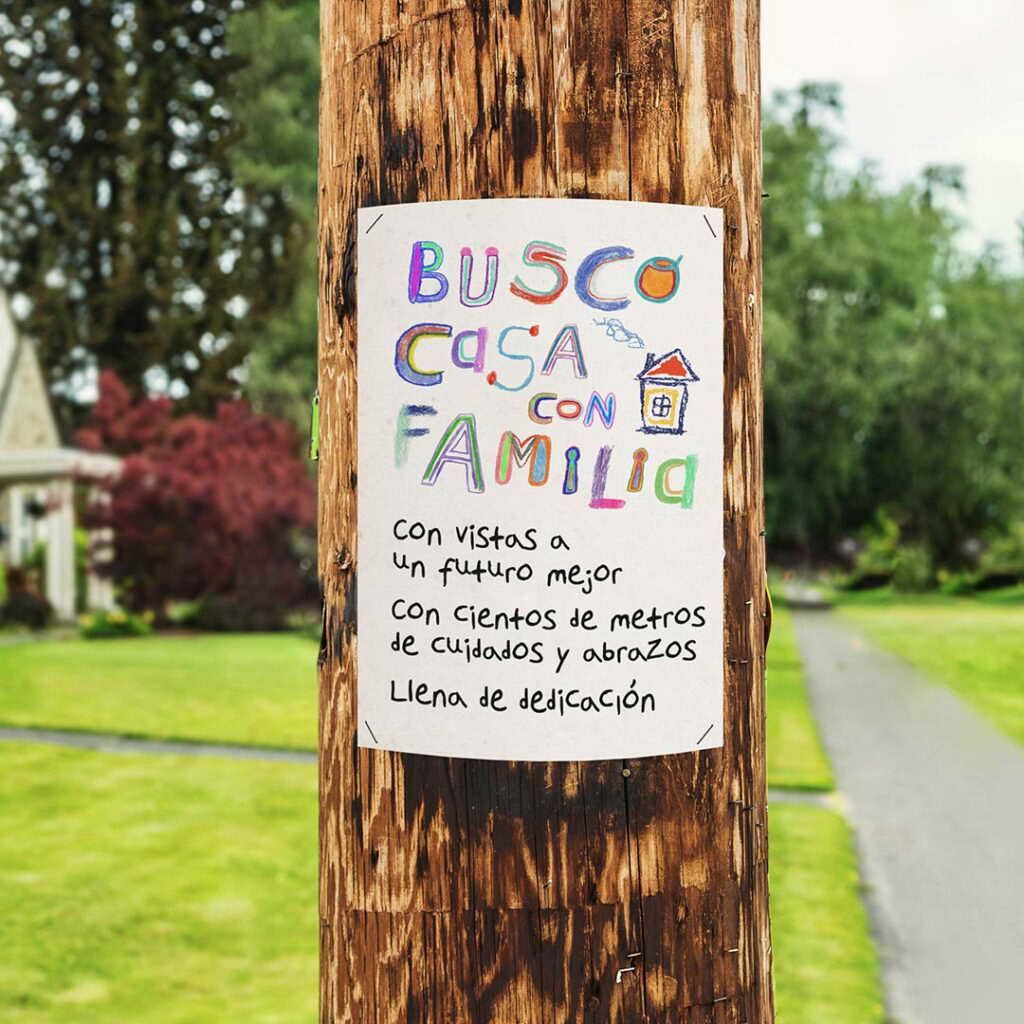 BUSCO
CASA
CON
FAMILIA
Con vistas a
un futuro mejor
Con cientos de metros
de cuidados y abrazos
Llena de dedicación